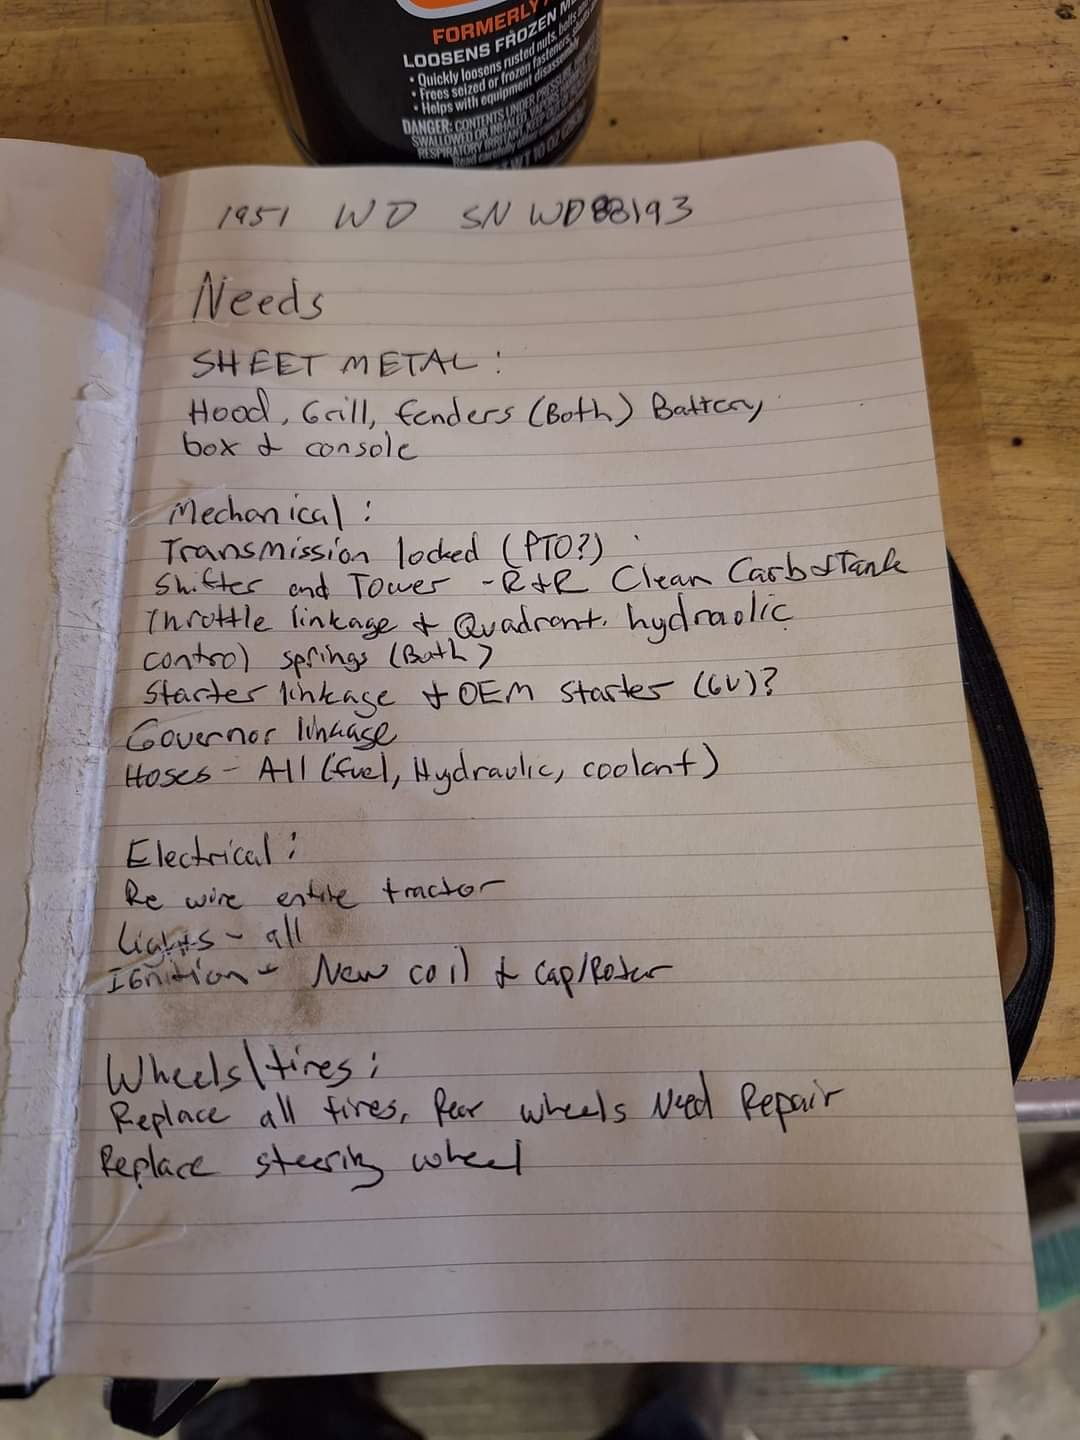 FORMERLY
LOOSENS FROZEN
• Quickly loosens rusted nuts, bolts
• Frees seized or frozen fasteners,
• Helps with equipment disassembly
DANGER: CONTENTS UNDER PRESSURE,
SWALLOWED OR INHALED.
RESPIRATORY
Read carefully
WT 10 OZ
1951 WD SN WD88193
Needs
SHEET METAL:
Hood, Grill, fenders (Both) Battery
box & console
Mechanical:
Transmission locked (PTO?)
Shifter and Tower - R&R Clean Carb & Tank
Throttle linkage & Quadrant. hydraulic
control springs (Both)
Starter linkage & OEM Starter (6V)?
Governor linkage
Hoses - All (fuel, Hydraulic, coolant)
Electrical:
Re wire entire tractor
Lights - all
IGnition - New coil & Cap/Rotor
Wheels/tires:
Replace all tires, Rear wheels Need Repair
Replace steering wheel